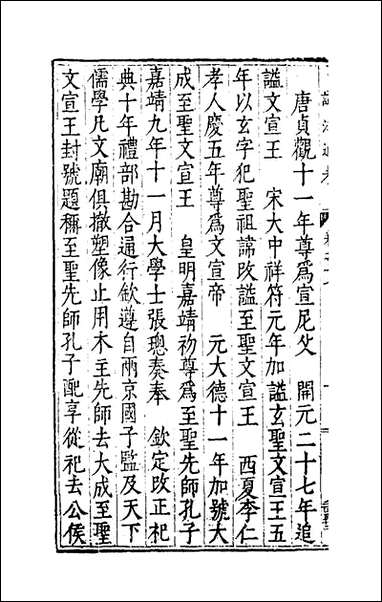 唐貞觀十一年尊爲宣尼父　開元二十七年追
謚文宣王　宋大中祥符元年加謚玄聖文宣王五
年以玄字犯聖祖諱改謚至聖文宣王　西夏李仁
孝人慶五年尊爲文宣帝　元大德十一年加號大
成至聖文宣王　皇明嘉靖初尊爲至聖先師孔子
嘉靖九年十一月大學士張璁奏奉　欽定改正祀
典十年禮部勘合通行欽遵自兩京國子監及天下
儒學凡文廟俱撤塑像止用木主先師去大成至聖
文宣王封號題稱至聖先師孔子配享從祀去公侯